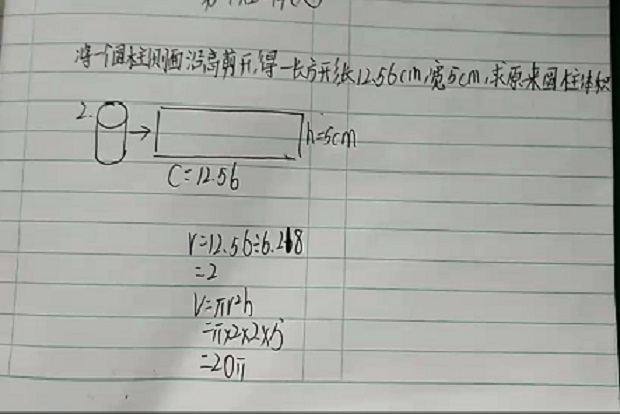 将一个圆柱侧面沿高剪开,得一长方形长12.56cm,宽5cm,求原来圆柱体积
2.
h=5cm
C=12.56
r=12.56÷6.28
=2
V=πr²h
=π×2×2×5
=20π